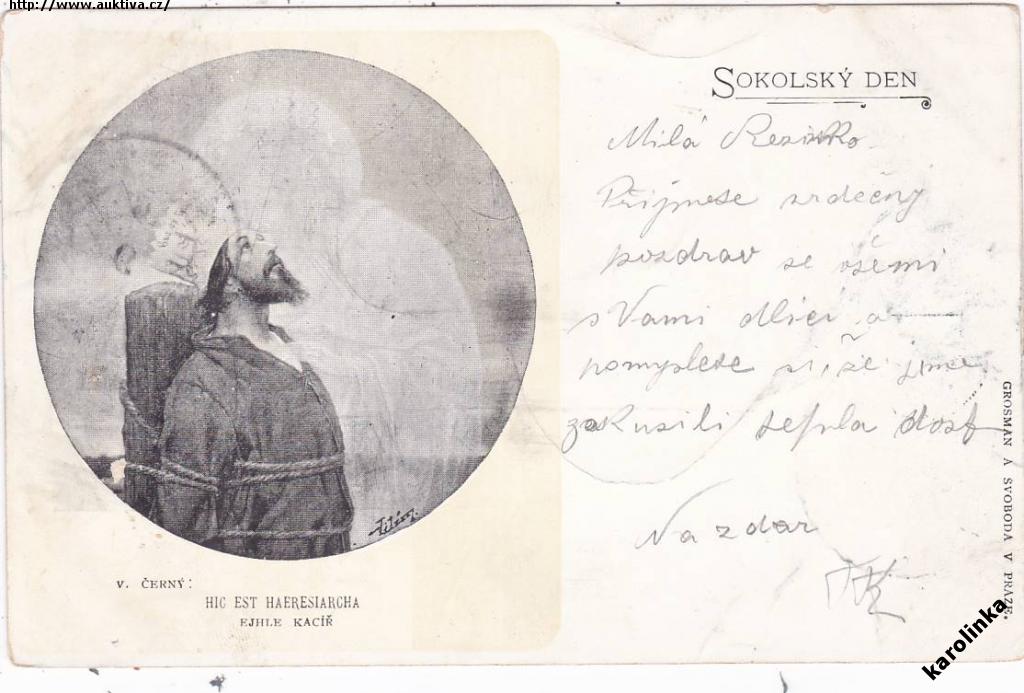 http://www.auktiva.cz/
SOKOLSKÝ DEN
Milá Resinko
Přijmete srdečný
pozdrav se všemi
s Vámi dlící a
pomyslete si, že jsme
zakusili tepla dost
Na zdar
V. ČERNÝ:
HIC EST HAERESIARCHA
EJHLE KACÍŘ
GROSMAN A SVOBODA V PRAZE.
karolinka